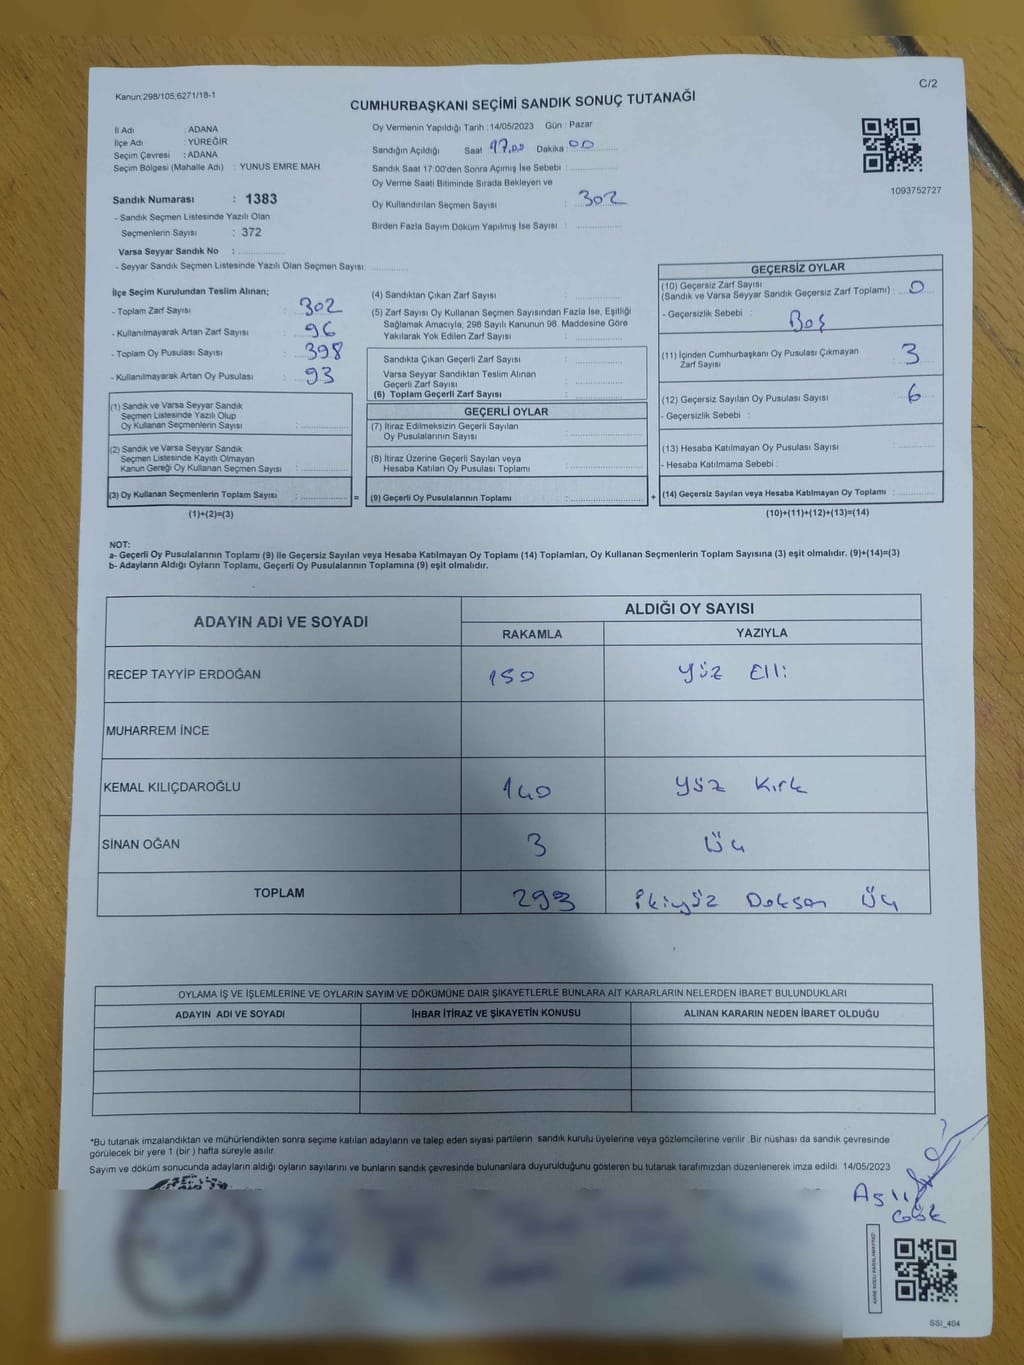 Kanun;298/105,6271/18-1
C/2
CUMHURBAŞKANI SEÇİMİ SANDIK SONUÇ TUTANAĞI
İl Adı : ADANA
İlçe Adı : YÜREĞİR
Seçim Çevresi : ADANA
Seçim Bölgesi (Mahalle Adı) : YUNUS EMRE MAH
Sandık Numarası : 1383
- Sandık Seçmen Listesinde Yazılı Olan
Seçmenlerin Sayısı : 372
Varsa Seyyar Sandık No :
- Seyyar Sandık Seçmen Listesinde Yazılı Olan Seçmen Sayısı:
Oy Vermenin Yapıldığı Tarih : 14/05/2023 Gün : Pazar
Sandığın Açıldığı Saat : 17.00 Dakika : 00
Sandık Saat 17:00'den Sonra Açımış İse Sebebi :
Oy Verme Saati Bitiminde Sırada Bekleyen ve
Oy Kullandırılan Seçmen Sayısı : 302
Birden Fazla Sayım Döküm Yapılmış İse Sayısı :
1093752727
İlçe Seçim Kurulundan Teslim Alınan;
- Toplam Zarf Sayısı : 302
- Kullanılmayarak Artan Zarf Sayısı : 96
- Toplam Oy Pusulası Sayısı : 398
- Kullanılmayarak Artan Oy Pusulası : 93
(1) Sandık ve Varsa Seyyar Sandık
Seçmen Listesinde Yazılı Olup
Oy Kullanan Seçmenlerin Sayısı :
(2) Sandık ve Varsa Seyyar Sandık
Seçmen Listesinde Kayıtlı Olmayan
Kanun Gereği Oy Kullanan Seçmen Sayısı :
(3) Oy Kullanan Seçmenlerin Toplam Sayısı : =
(1)+(2)=(3)
(4) Sandıktan Çıkan Zarf Sayısı :
(5) Zarf Sayısı Oy Kullanan Seçmen Sayısından Fazla İse, Eşitliği
Sağlamak Amacıyla; 298 Sayılı Kanunun 98. Maddesine Göre
Yakılarak Yok Edilen Zarf Sayısı :
Sandıkta Çıkan Geçerli Zarf Sayısı :
Varsa Seyyar Sandıktan Teslim Alınan
Geçerli Zarf Sayısı :
(6) Toplam Geçerli Zarf Sayısı :
GEÇERLİ OYLAR
(7) İtiraz Edilmeksizin Geçerli Sayılan
Oy Pusulalarının Sayısı :
(8) İtiraz Üzerine Geçerli Sayılan veya
Hesaba Katılan Oy Pusulası Toplamı :
(9) Geçerli Oy Pusulalarının Toplamı : +
GEÇERSİZ OYLAR
(10) Geçersiz Zarf Sayısı
(Sandık ve Varsa Seyyar Sandık Geçersiz Zarf Toplamı) : 0
- Geçersizlik Sebebi : Boş
(11) İçinden Cumhurbaşkanı Oy Pusulası Çıkmayan
Zarf Sayısı : 3
(12) Geçersiz Sayılan Oy Pusulası Sayısı : 6
- Geçersizlik Sebebi :
(13) Hesaba Katılmayan Oy Pusulası Sayısı :
- Hesaba Katılmama Sebebi :
(14) Geçersiz Sayılan veya Hesaba Katılmayan Oy Toplamı :
(10)+(11)+(12)+(13)=(14)
NOT:
a- Geçerli Oy Pusulalarının Toplamı (9) ile Geçersiz Sayılan veya Hesaba Katılmayan Oy Toplamı (14) Toplamları, Oy Kullanan Seçmenlerin Toplam Sayısına (3) eşit olmalıdır. (9)+(14)=(3)
b- Adayların Aldığı Oyların Toplamı, Geçerli Oy Pusulalarının Toplamına (9) eşit olmalıdır.
ADAYIN ADI VE SOYADI ALDIĞI OY SAYISI
RAKAMLA YAZIYLA
RECEP TAYYİP ERDOĞAN 150 Yüz Elli
MUHARREM İNCE
KEMAL KILIÇDAROĞLU 140 Yüz Kırk
SİNAN OĞAN 3 Üç
TOPLAM 293 İkiyüz Doksan Üç
OYLAMA İŞ VE İŞLEMLERİNE VE OYLARIN SAYIM VE DÖKÜMÜNE DAİR ŞİKAYETLERLE BUNLARA AİT KARARLARIN NELERDEN İBARET BULUNDUKLARI
ADAYIN ADI VE SOYADI İHBAR İTİRAZ VE ŞİKAYETİN KONUSU ALINAN KARARIN NEDEN İBARET OLDUĞU
*Bu tutanak imzalandıktan ve mühürlendikten sonra seçime katılan adayların ve talep eden siyasi partilerin sandık kurulu üyelerine veya gözlemcilerine verilir. Bir nüshası da sandık çevresinde
görülecek bir yere 1 (bir ) hafta süreyle asılır.
Sayım ve döküm sonucunda adayların aldığı oyların sayılarını ve bunların sandık çevresinde bulunanlara duyurulduğunu gösteren bu tutanak tarafımızdan düzenlenerek imza edildi. 14/05/2023
Aslı
Gök
SSI_404